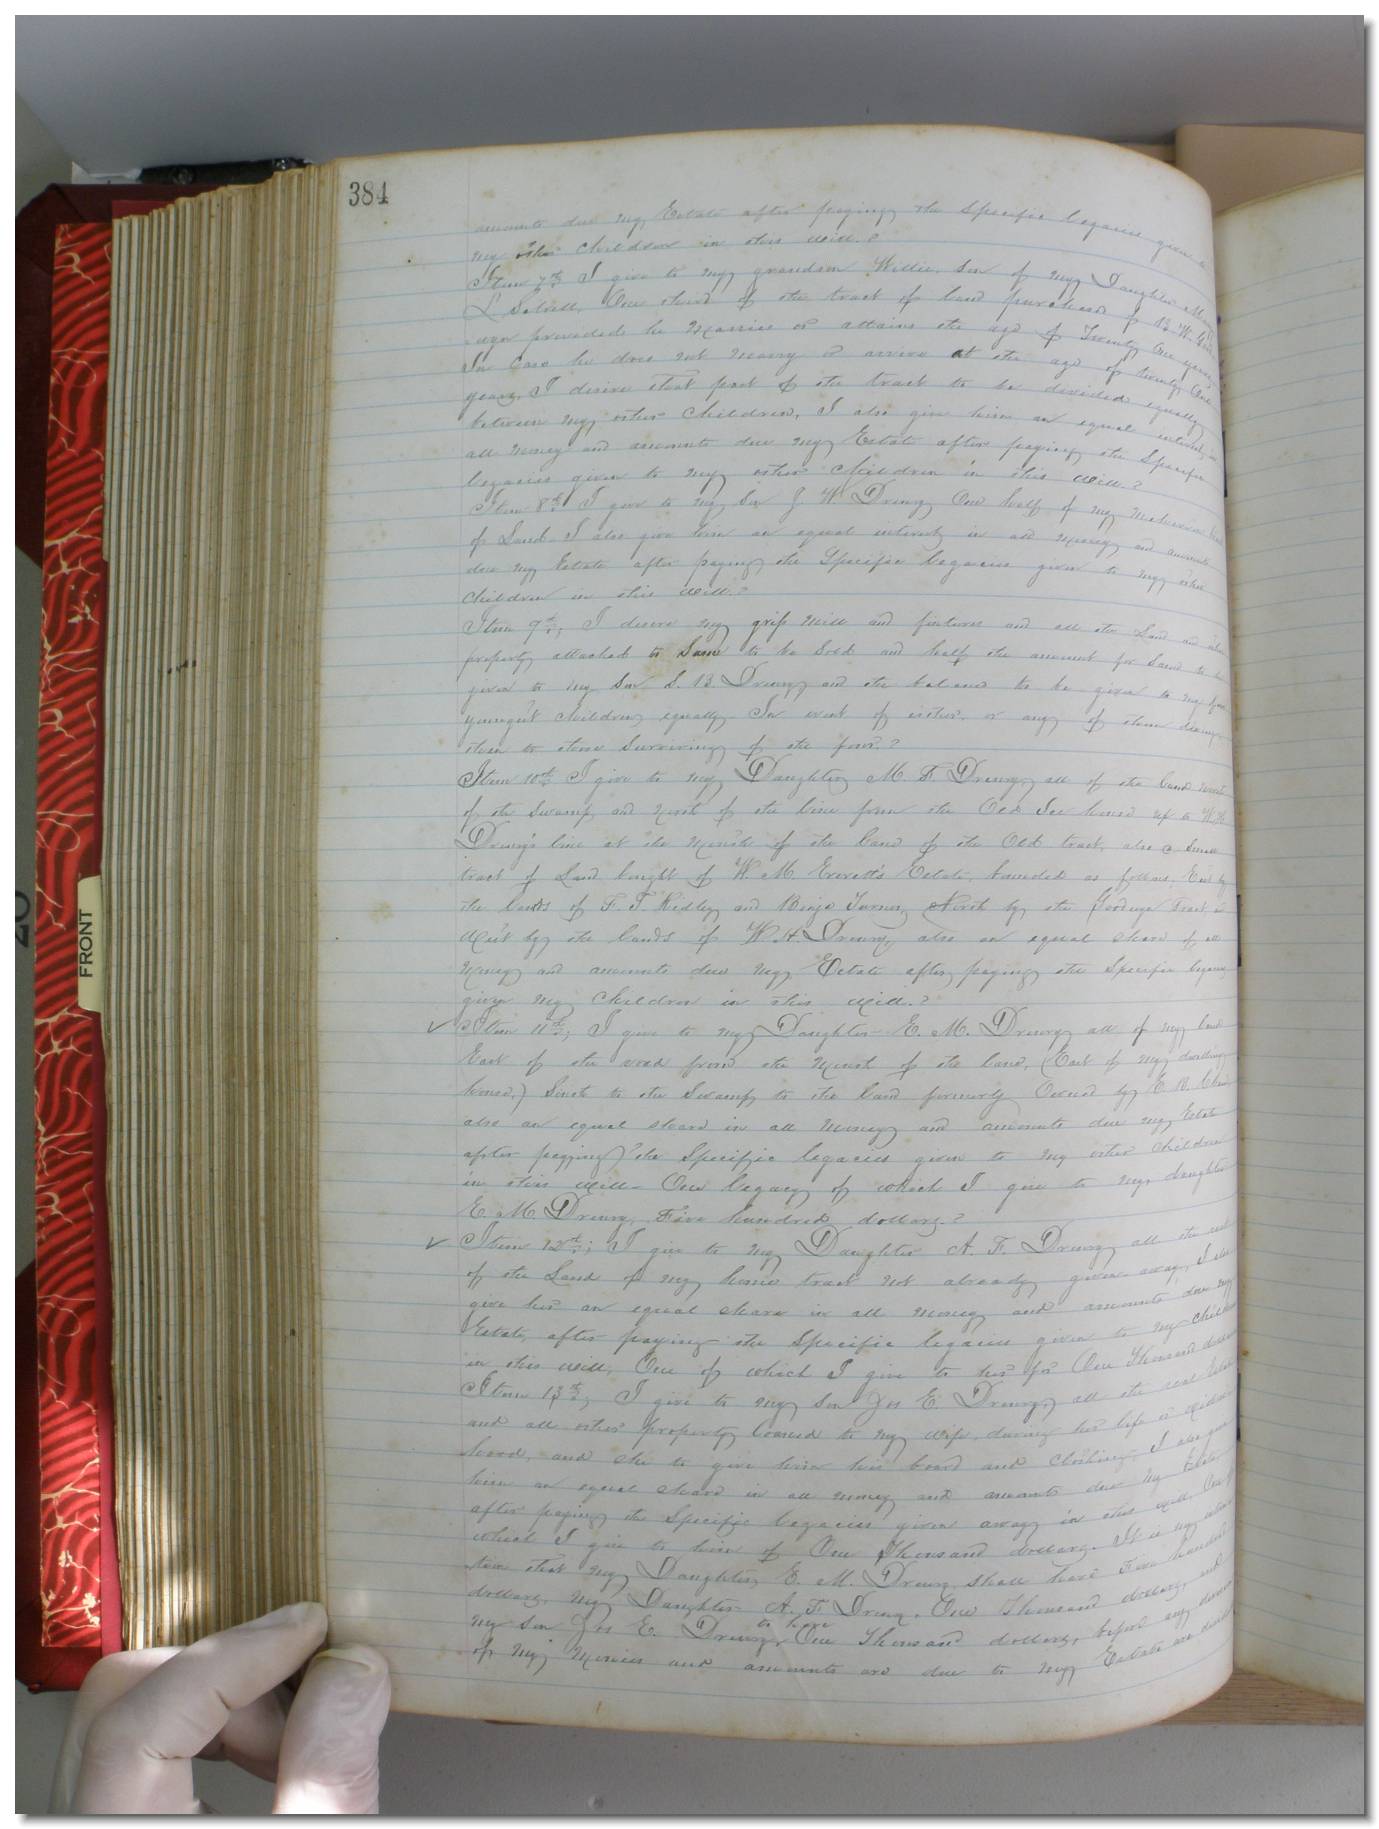 384
amounts due my Estate after paying the Specific legacies given to
my other Children in this will.?
Item 7th I give to my grandson Willie, Son of my Daughter
L. One third of the tract of land purchased of B. W.
provided he Marries or attains the age of Twenty One years
In Case he does not marry or arrive at the age of twenty One
years, I desire that part of the tract to be divided equally
between my other Children, I also give him an equal interest in
all Money and amounts due my Estate after paying the Specific
legacies given to my other Children in this will.?
Item 8th I give to my Son J. W. Drewry One half of my
of Land I also give him an equal interest in all Money and amounts
due my Estate after paying the Specific legacies given to my other
Children in this will.?
Item 9th; I desire my grist Mill and fixtures and all the Land and other
property attached to Same to be Sold and half the amount for Same to be
given to my Son S. B. Drewry and the balance to be given to my four
youngest children equally In event of either or any of them dieing
then to those Surviving of the four.?
Item 10th I give to my Daughter M. F. Drewry all of the land North
of the Swamp and North of the line from the Old Ice house up to W. H.
Drewry's line at the North of the land of the Old tract, also a Small
tract of Land bought of W. M. Everett's Estate, bounded as follows, East by
the lands of F. T. Ridley and Benja Turner, North by the Tract
West by the lands of W. H. Drewry, also an equal share of all
Money and amounts due my Estate after paying the Specific legacies
given my Children in this will.?
✓ Item 11th; I give to my Daughter E. M. Drewry all of my land
East of the road from the North of the land, (East of my dwelling
house,) South to the Swamp to the land formerly Owned by E. B.
also an equal share in all Money and amounts due my Estate
after paying the Specific legacies given to my other Children
in this will— One legacy of which I give to my daughter
E. M. Drewry, Five hundred dollars.?
✓ Item 12th; I give to my Daughter A. F. Drewry all the rest
of the Land of my home tract not already given away, I also
give her an equal share in all Money and amounts due my
Estate, after paying the Specific legacies given to my Children
in this will, One of which I give to her for One Thousand dollars
Item 13th; I give to my Son Jos E. Drewry, all the real Estate
and all other property loaned to my wife, during her life or widow
hood, and she to give him his board and Clothing, I also give
him an equal share in all Money and amounts due my Estate
after paying the Specific legacies given away in this will One of
which I give to him of One Thousand dollars. It is my
tion that my Daughter, E. M. Drewry shall have Five hundred
dollars, my Daughter A. F. Drewry, One Thousand dollars, and
my Son Jos E. Drewry, to have One Thousand dollars, before any
of my Monies and amounts are due to my Estate are
FRONT